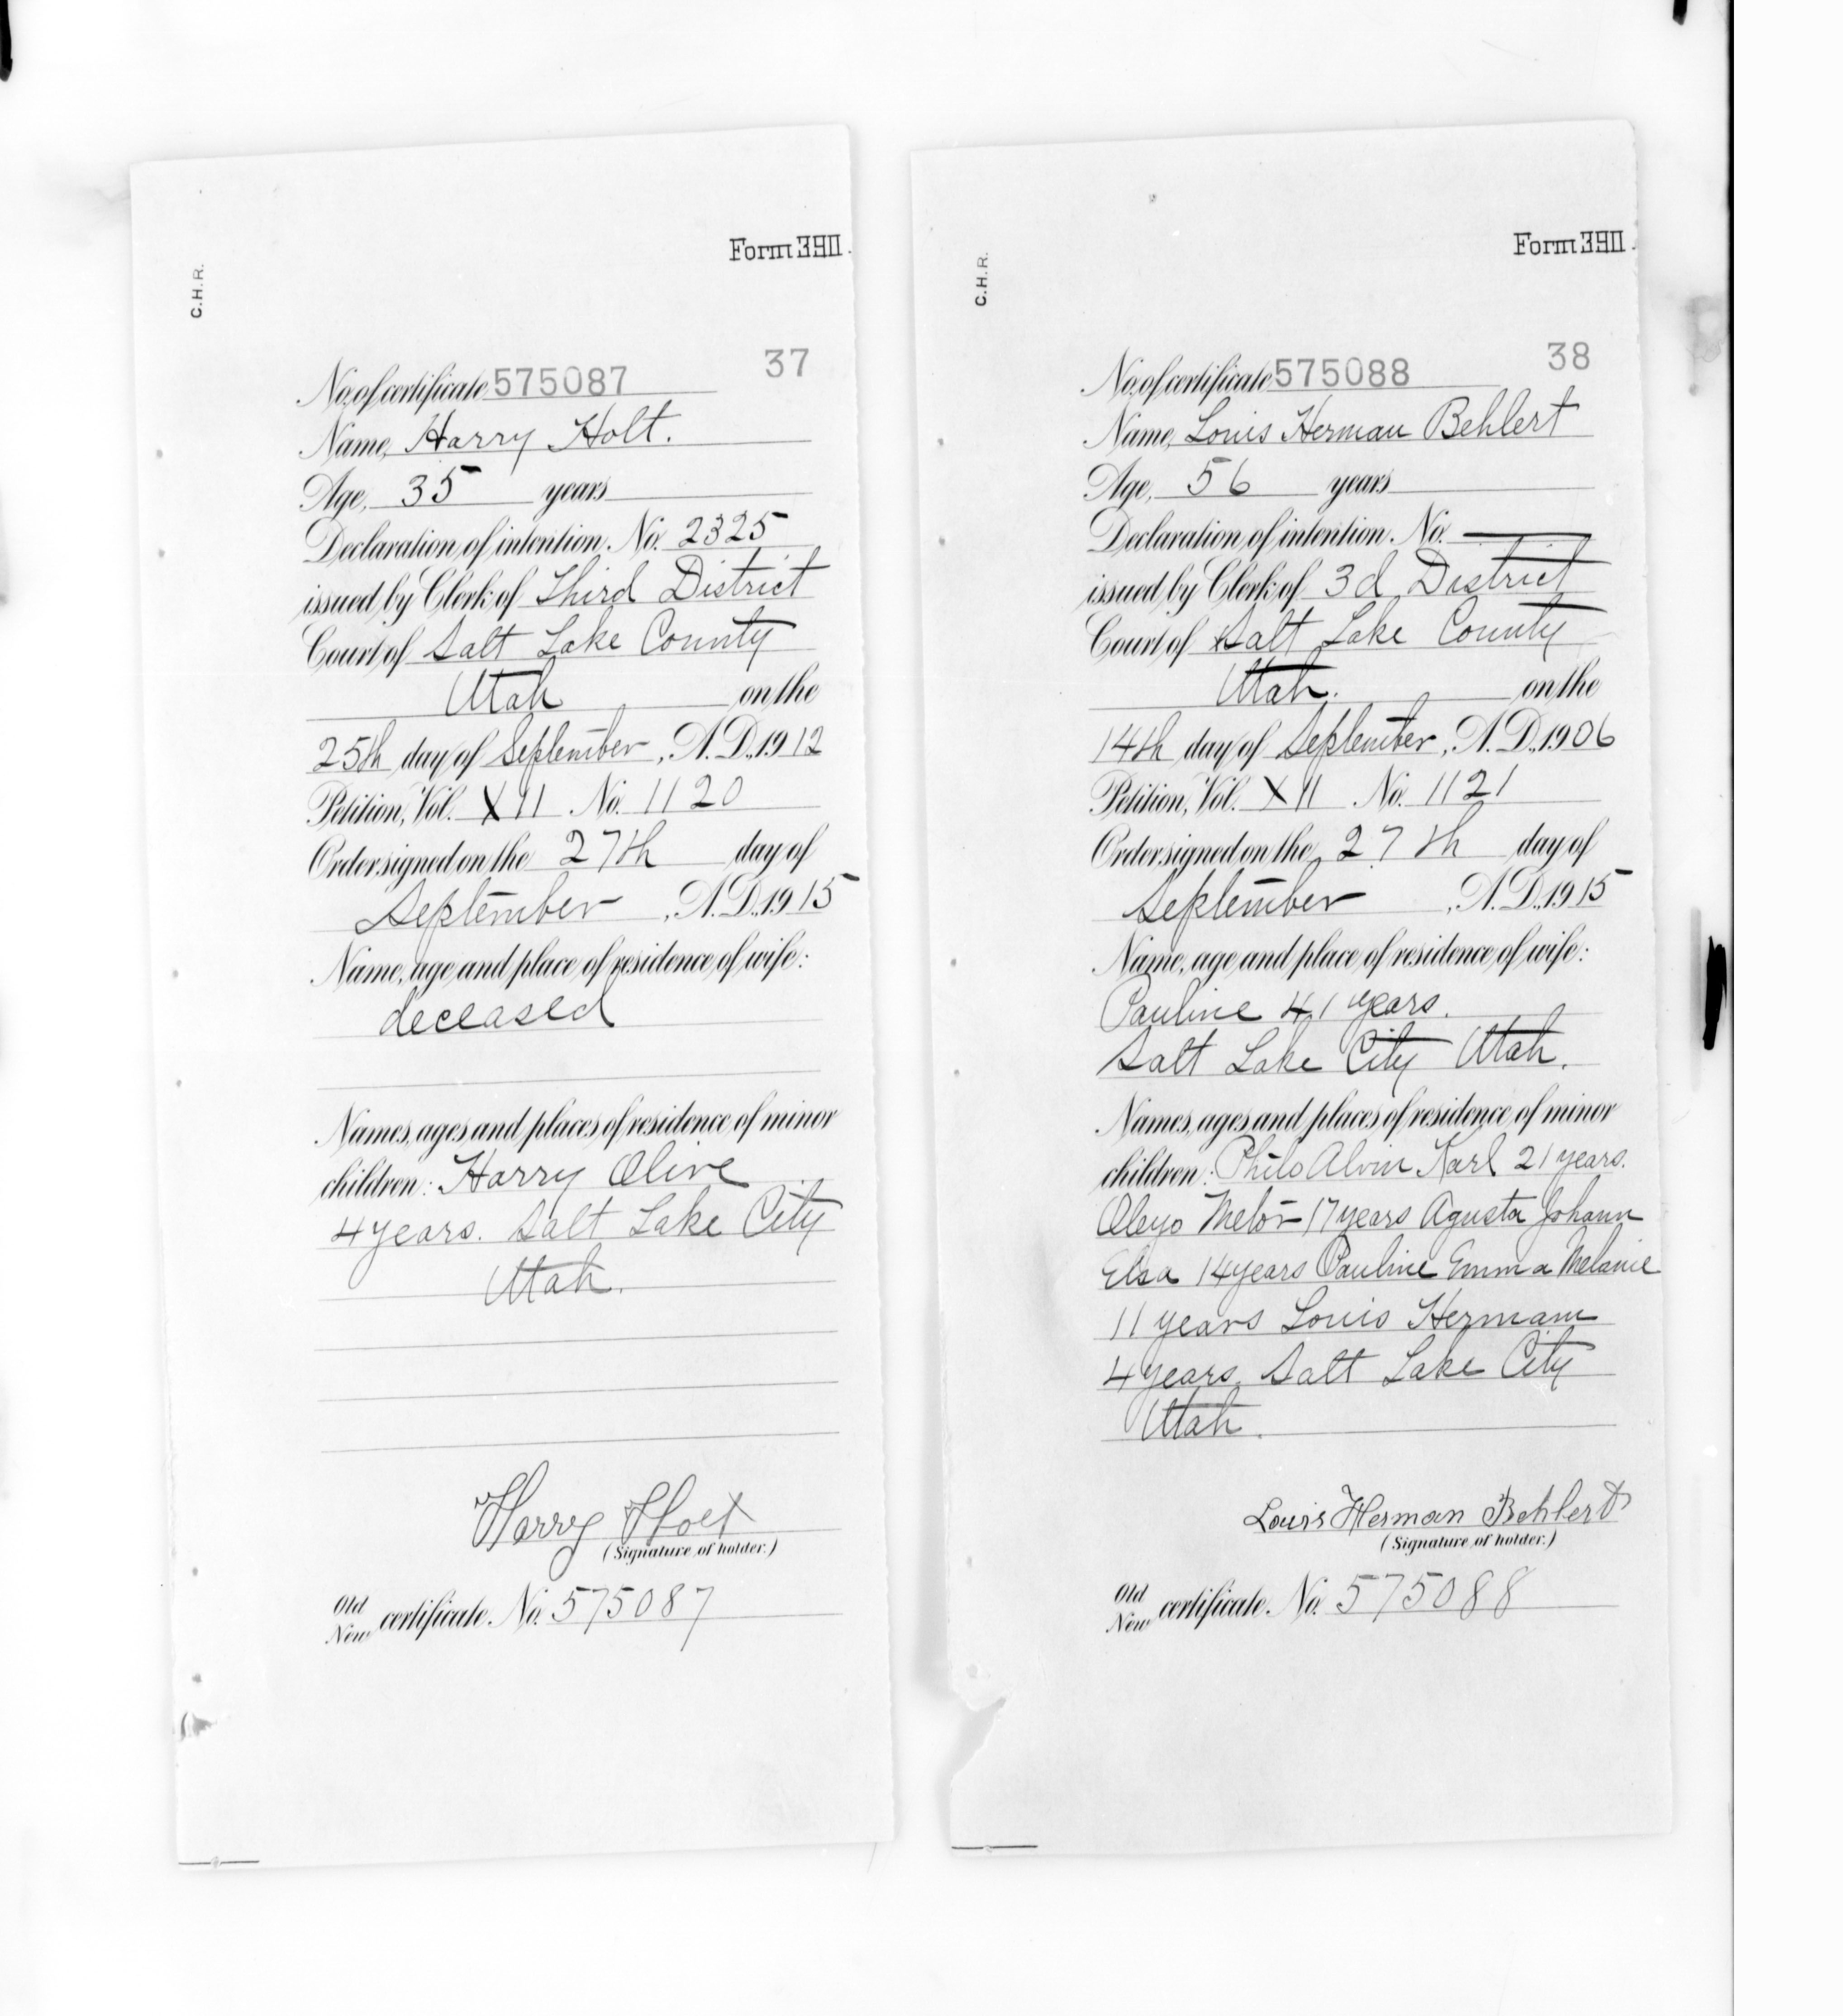 C.H.R.
Form 390.
37
No. of certificate 575087
Name, Harry Holt.
Age, 35 years
Declaration of intention. No. 2325
issued by Clerk of Third District
Court of Salt Lake County
Utah on the
25th day of September, A.D., 1912
Petition, Vol. XII No. 1120
Order signed on the 27th day of
September, A.D., 1915
Name, age and place of residence of wife:
deceased
Names, ages and places of residence of minor
children: Harry Olive
4 years. Salt Lake City
Utah.
Harry Holt
(Signature of holder.)
Old
New certificate. No. 575087
C.H.R.
Form 390.
38
No. of certificate 575088
Name, Louis Herman Behlert
Age, 56 years
Declaration of intention. No. —
issued by Clerk of 3d District
Court of Salt Lake County
Utah. on the
14th day of September, A.D., 1906
Petition, Vol. XII No. 1121
Order signed on the 27th day of
September, A.D., 1915
Name, age and place of residence of wife:
Pauline 41 years.
Salt Lake City Utah.
Names, ages and places of residence of minor
children: Philo Alvin Karl 21 years.
17 years Agusta Johann
Elsa 14 years Pauline Emma Melanie
11 years Louis Hermam
4 years. Salt Lake City
Utah.
Louis Herman Behlert
(Signature of holder.)
Old
New certificate. No. 575088